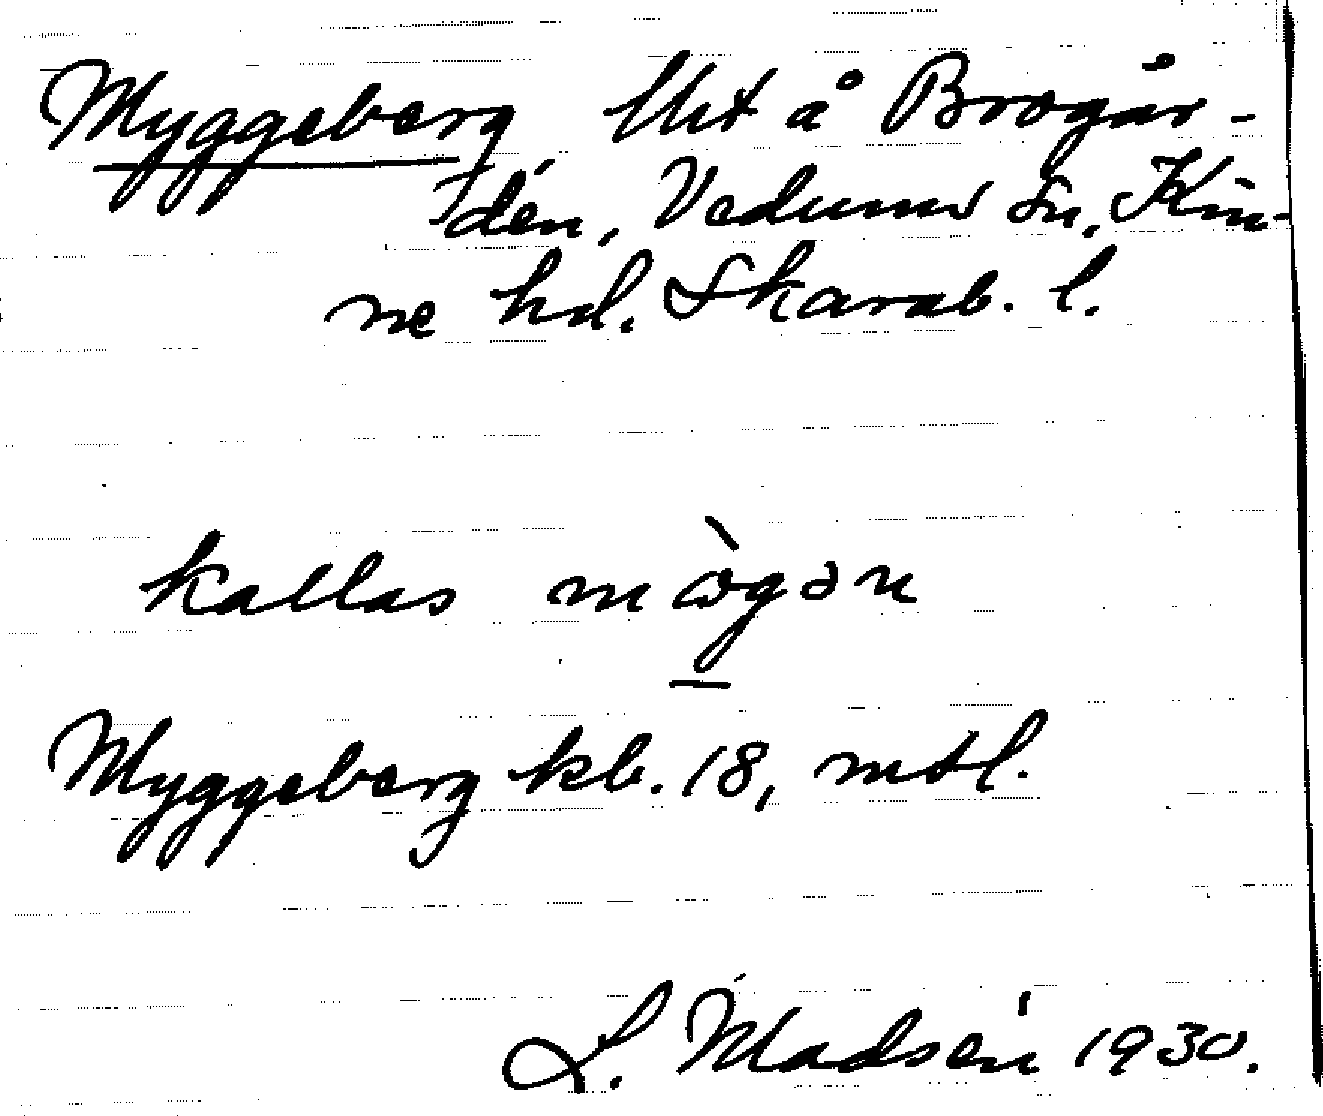 Myggeberg Utt å Brogår-
den, Vedums sn, Kin-
ne hd. Skarab. l.
kallas
Myggeberg kb. 18, mtl.
L. Madsén 1930.